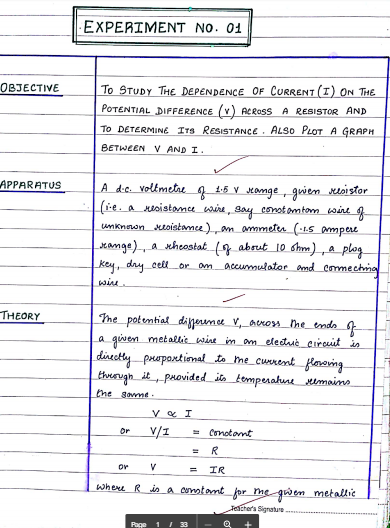 EXPERIMENT NO. 01
OBJECTIVE
TO STUDY THE DEPENDENCE OF CURRENT (I) ON THE
POTENTIAL DIFFERENCE (V) ACROSS A RESISTOR AND
TO DETERMINE ITS RESISTANCE. ALSO PLOT A GRAPH
BETWEEN V AND I.
APPARATUS
A d.c. voltmetre of 1.5 V range, given resistor
(i.e. a resistance wire, say constantam wire of
unknown resistance), an ammeter (-1.5 ampere
range), a rheostat (of about 10 ohm), a plug
key, dry cell or an accumulator and connecting
wire.
THEORY
The potential difference V, across the ends of
a given metallic wire in an electric circuit is
directly proportional to the current flowing
through it, provided its temperature remains
the same.
V ∝ I
or V/I = constant
= R
or V = IR
where R is a constant for the given metallic
Teacher's Signature
Page 1 / 33 − +